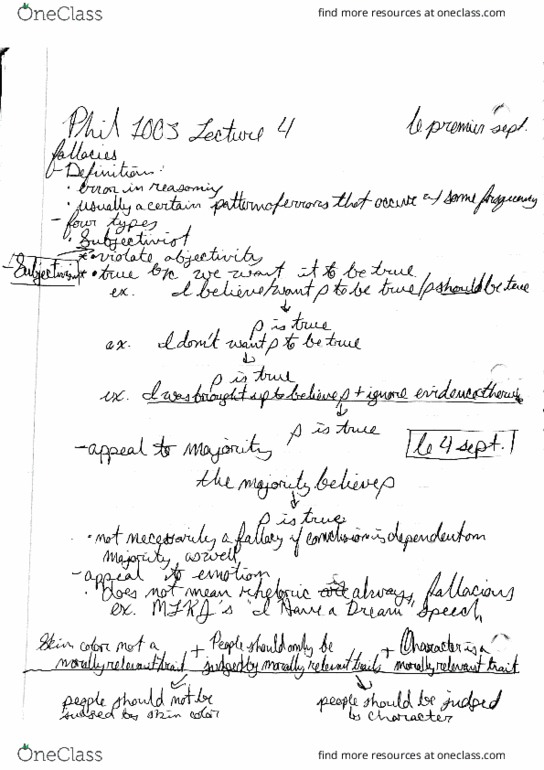 OneClass
find more resources at oneclass.com
Phil 1003 Lecture 4
le premier sept.
fallacies
- Definition:
• error in reasoning
• usually a certain pattern of errors that occur w/ some frequency
- four types
• Subjectivist
* violate objectivity
- Subjectivist
* • true b/c we want it to be true
ex. I believe/want p to be true/p should be true
↓
p is true
ex. I don't want p to be true
↓
p is true
ex. I was brought up to believe p + ignore evidence otherwise
↓
p is true
- appeal to majority
le 4 sept.
the majority believes p
↓
p is true
• not necessarily a fallacy if conclusion is dependent on
majority as well
- appeal to emotion
• does not mean rhetoric always fallacious
ex. MLKJ's "I Have a Dream" speech
Skin color not a + People should only be + Character is a
morally relevant trait judged by morally relevant traits morally relevant trait
people should not be people should be judged
judged by skin color by character
OneClass
find more resources at oneclass.com